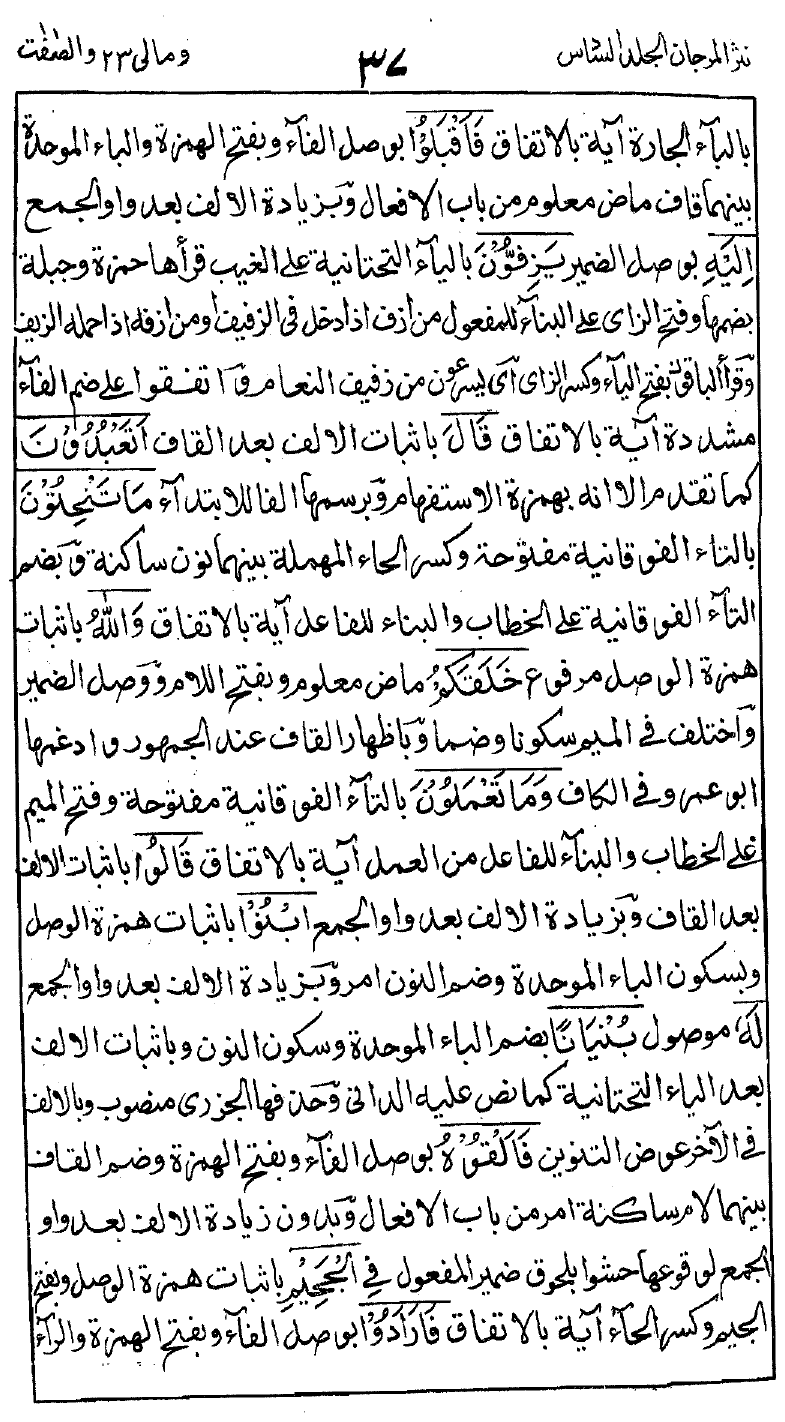 نثر المرجان الجلد السادس ٣٧ ومالى ٢٣ والصفت
بالبآء الجارة آية بالاتفاق فَاَقْبَلُوْٓا بوصل الفآء وبفتح الهمزة والباء الموحدة
بينهما قاف ماض معلوم من باب الافعال وَبزيادة الالف بعد واو الجمع
اِلَيْهِ بوصل الضمير يَزِفُّوْنَ بالياء التحتانية على الغيب قرأها حمزة وجبلة
بضمها وفتح الزاى على البنآء للمفعول من أزف اذا دخل فى الزفيف او من ازفه اذا حمله الزيف
وَقرأ الباقون بفتح اليآء وكسر الزاى اى يسرعون من زفيف النعام وَاتفقوا على ضم الفآء
مشددة آية بالاتفاق قَالَ باثبات الالف بعد القاف اَتَعْبُدُوْنَ
كما تقدم الا انه بهمزة الاستفهام وَبرسمها الفا للابتدآء مَا تَنْحِتُوْنَ
بالتاء الفوقانية مفتوحة وكسر الحاء المهملة بينهما نون ساكنة وَبضم
التآء الفوقانية على الخطاب والبناء للفاعل آية بالاتفاق وَاللّٰهُ باثبات
همزة الوصل مرفوع خَلَقَكُمْ ماض معلوم وبفتح اللام وَوصل الضمير
وَاختلف فى الميم سكونا وضما وَباظهار القاف عند الجمهور وادغمها
ابو عمرو فى الكاف وَمَا تَعْمَلُوْنَ بالتآء الفوقانية مفتوحة وفتح الميم
على الخطاب والبنآء للفاعل من العمل آية بالاتفاق قَالُوا باثبات الالف
بعد القاف وَبزيادة الالف بعد واو الجمع ابْنُوْا باثبات همزة الوصل
وبسكون الباء الموحدة وضم النون امر وَبزيادة الالف بعد واو الجمع
لَهٗ موصول بُنْيَانًا بضم الباء الموحدة وسكون النون وباثبات الالف
بعد الياء التحتانية كما نص عليه الدانى وَحذفها الجزرى منصوب وبالالف
فى الآخر عوض التنوين فَاَلْقُوْهُ بوصل الفآء وبفتح الهمزة وضم القاف
بينهما لام ساكنة امر من باب الافعال وَبدون زيادة الالف بعد واو
الجمع لوقوعها حشوا بلحوق ضمير المفعول فِى الْجَحِيْمِ باثبات همزة الوصل وبفتح
الجيم وكسر الحآء آية بالاتفاق فَاَرَادُوْا بوصل الفآء وبفتح الهمزة والرآء